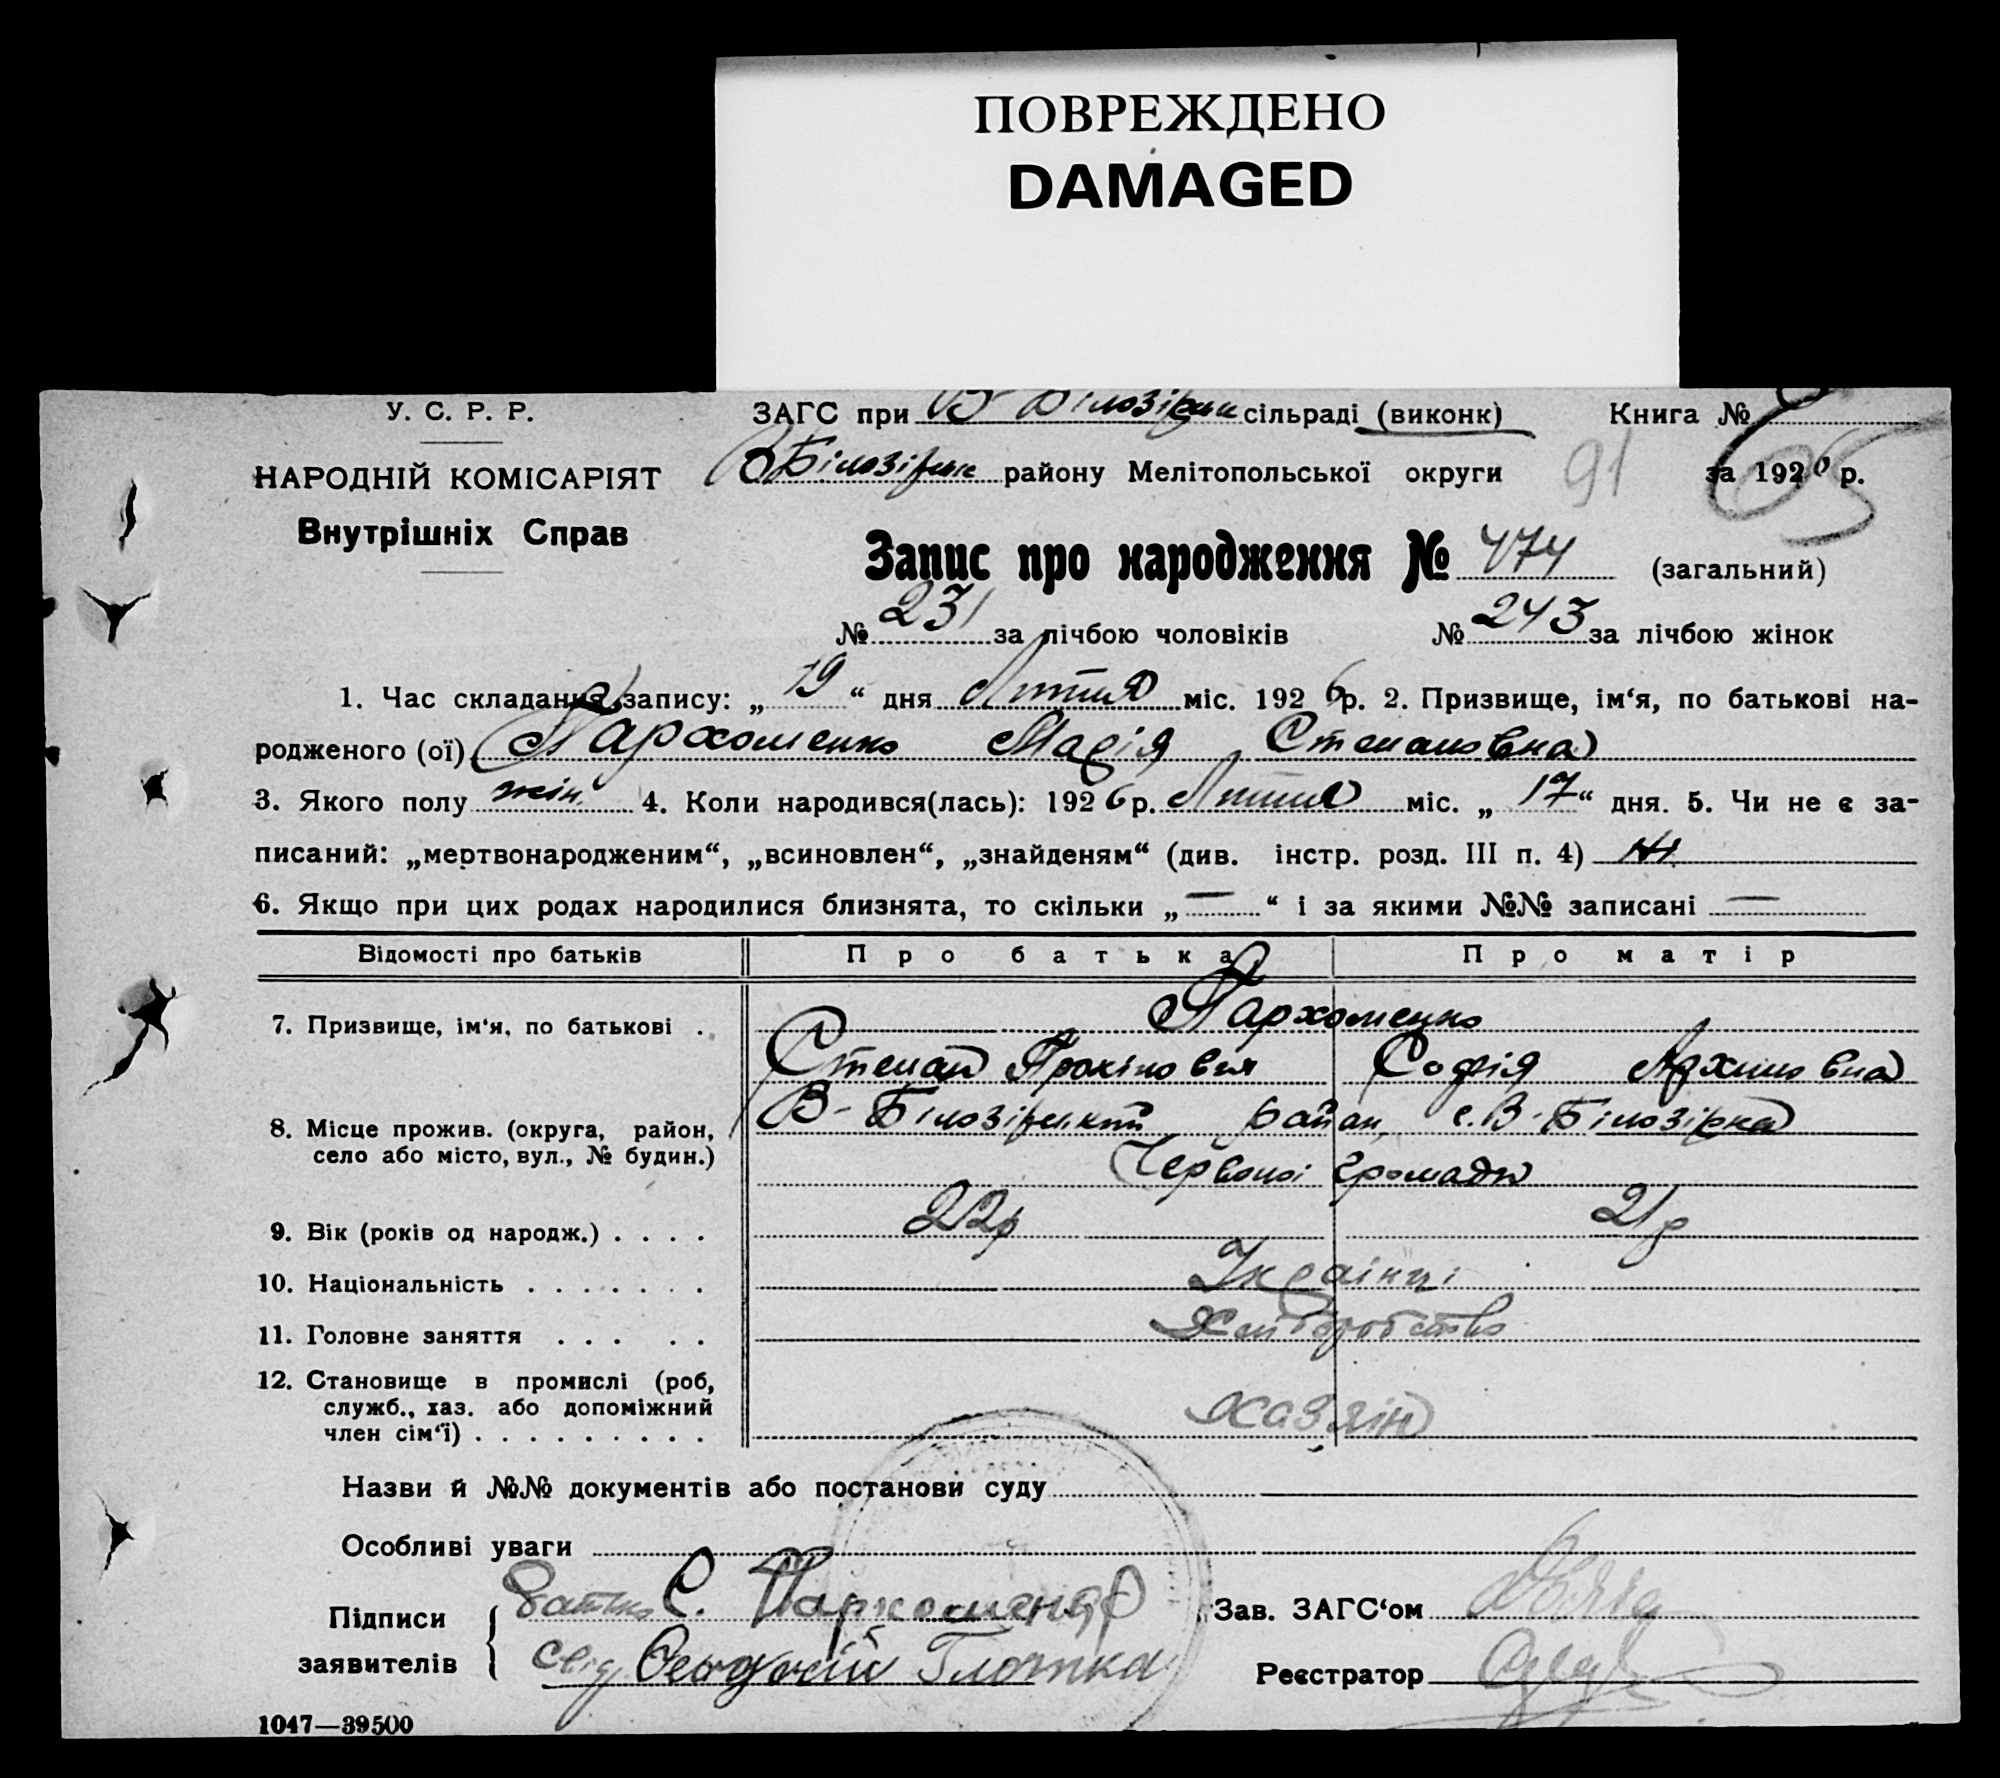 ПОВРЕЖДЕНО
DAMAGED
У. С. Р. Р.
НАРОДНІЙ КОМІСАРІЯТ
Внутрішніх Справ
ЗАГС при В-Білозірськ сільраді (виконк) Книга №
В-Білозірськ району Мелітопольської округи 91 за 1926 р.
Запис про народження № 474 (загальний)
№ 231 за лічбою чоловіків № 243 за лічбою жінок
1. Час складання запису: „ 19 “ дня Лютня міс. 1926 р. 2. Призвище, ім‘я, по батькові на-
родженого (ої) Пархоменко Марія Степановна
3. Якого полу жін. 4. Коли народився(лась): 1926 р. Лютня міс. „ 17 “ дня. 5. Чи не є за-
писаний: „мертвонародженим“, „всиновлен“, „знайденям“ (див. інстр. розд. III п. 4) Ні
6. Якщо при цих родах народилися близнята, то скільки „ — “ і за якими №№ записані —
Відомості про батьків Про батька Про матір
7. Призвище, ім‘я, по батькові . Пархоменко
Степан Софія Архиповна
8. Місце прожив. (округа, район, В-Білозірський район, с. В-Білозірка
село або місто, вул., № будин.) Червоної громади
9. Вік (років од народж.) . . . . 22р 21р
10. Національність . . . . . . . Українці
11. Головне заняття . . . . . Хліборобство
12. Становище в промислі (роб,
служб., хаз. або допоміжний
член сім‘ї) . . . . . . . . . Хазяїн
Назви й №№ документів або постанови суду
Особливі уваги
Підписи Батько С. Пархоменко Зав. ЗАГС‘ом
заявителів свід Глотка Реєстратор
1047—39500